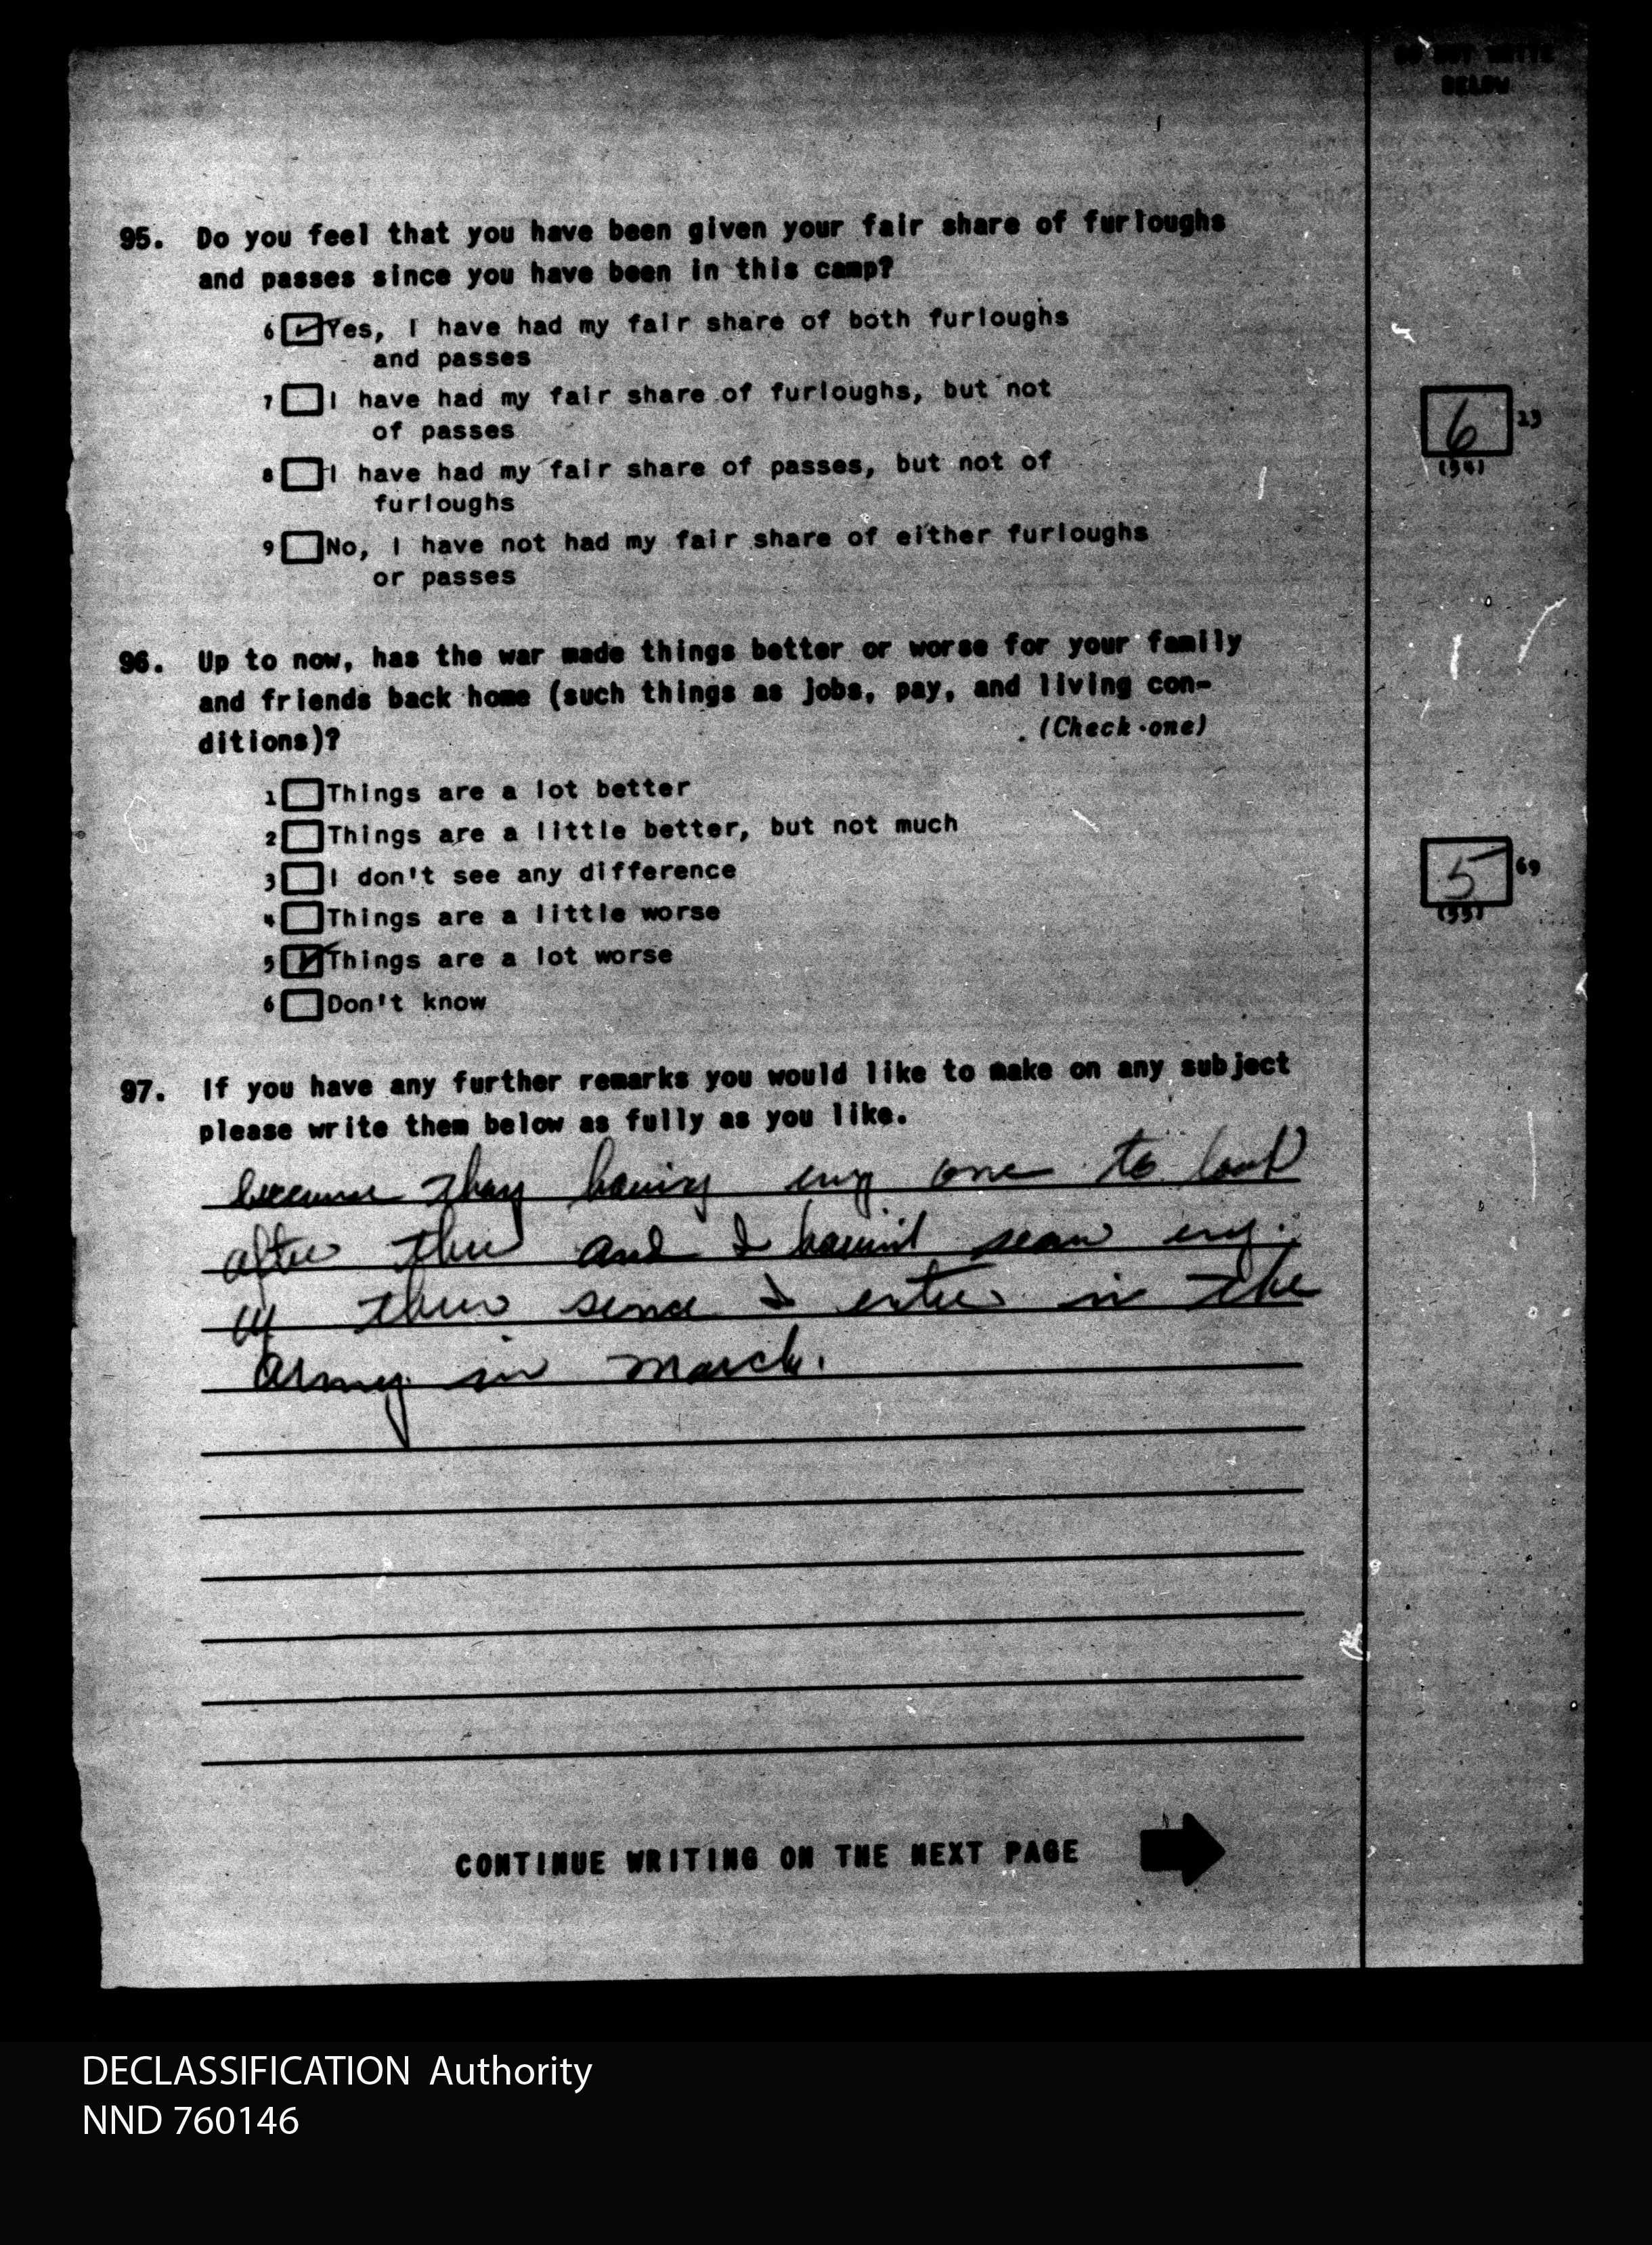 DO NOT WRITE
BELOW
95. Do you feel that you have been given your fair share of furloughs
and passes since you have been in this camp?
6 Yes, I have had my fair share of both furloughs
and passes
7 I have had my fair share of furloughs, but not
of passes
8 I have had my fair share of passes, but not of
furloughs
9 No, I have not had my fair share of either furloughs
or passes
6 13
(54)
96. Up to now, has the war made things better or worse for your family
and friends back home (such things as jobs, pay, and living con-
ditions)? (Check one)
1 Things are a lot better
2 Things are a little better, but not much
3 I don't see any difference
4 Things are a little worse
5 Things are a lot worse
6 Don't know
5 69
(55)
97. If you have any further remarks you would like to make on any subject
please write them below as fully as you like.
because thay one to look
after and I seen eny
of I in the
army in march.
CONTINUE WRITING ON THE NEXT PAGE
DECLASSIFICATION Authority
NND 760146